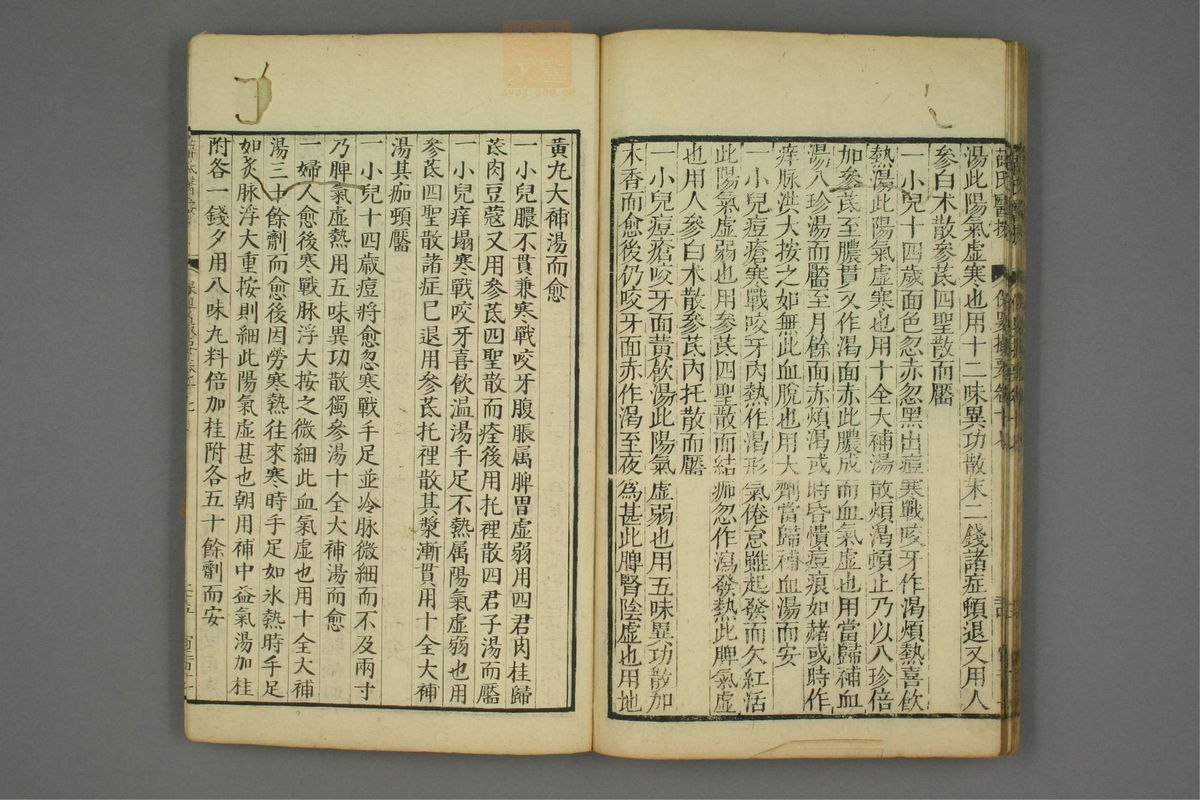 薛氏醫按 保嬰撮要卷十八
湯此陽氣虛寒也用十二味異功散末二錢諸症頓退又用人
參白朮散參芪四聖散而靨
一小兒十四歲面色忽赤忽黑出痘寒戰咬牙作渴煩熱喜飲
熱湯此陽氣虛寒也用十全大補湯散煩渴頓止乃以八珍倍
加參芪至膿貫又作渴面赤此膿成而血氣虛也用當歸補血
湯八珍湯而靨至月餘面赤煩渴或時昏憒痘痕如赭或時作
痒脉洪大按之如無此血脫也用大劑當歸補血湯而安
一小兒痘瘡寒戰咬牙內熱作渴形氣倦怠雖起發而欠紅活
此陽氣虛弱也用參芪四聖散而結痂忽作瀉發熱此脾氣虛
也用人參白朮散參芪內托散而靨
一小兒痘瘡咬牙面黃飲湯此陽氣虛弱也用五味異功散加
木香而愈後仍咬牙面赤作渴至夜爲甚此脾腎陰虛也用地
黃丸大補湯而愈
一小兒膿不貫兼寒戰咬牙腹脹属脾胃虛弱用四君肉桂歸
芪肉豆蔻又用參芪四聖散而痊後用托裡散四君子湯而靨
一小兒痒塌寒戰咬牙喜飲温湯手足不熱属陽氣虛弱也用
參芪四聖散諸症已退用參芪托裡散其漿漸貫用十全大補
湯其痂頓靨
一小兒十四歲痘將愈忽寒戰手足並冷脉微細而不及兩寸
乃脾氣虛熱用五味異功散獨參湯十全大補湯而愈
一婦人愈後寒戰脉浮大按之微細此血氣虛也用十全大補
湯三十餘劑而愈後因勞寒熱往來寒時手足如氷熱時手足
如炙脉浮大重按則細此陽氣虛甚也朝用補中益氣湯加桂
附各一錢夕用八味丸料倍加桂附各五十餘劑而安